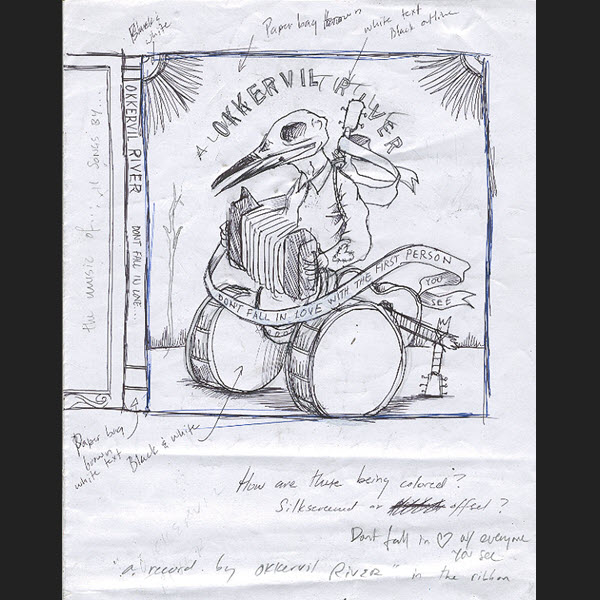 Black &
white
Paper bag brown
white text
Black outline
OKKERVIL RIVER
OKKERVIL RIVER
DONT FALL IN LOVE...
the music of... 11 songs by...
DON'T FALL IN LOVE WITH THE FIRST PERSON
YOU
SEE
Paper bag
brown
white text
Black & white
How are these being colored?
Silkscreened or offset?
Dont fall in ♡ w/ everyone
you see
"a record by OKKERVIL RIVER" in the ribbon